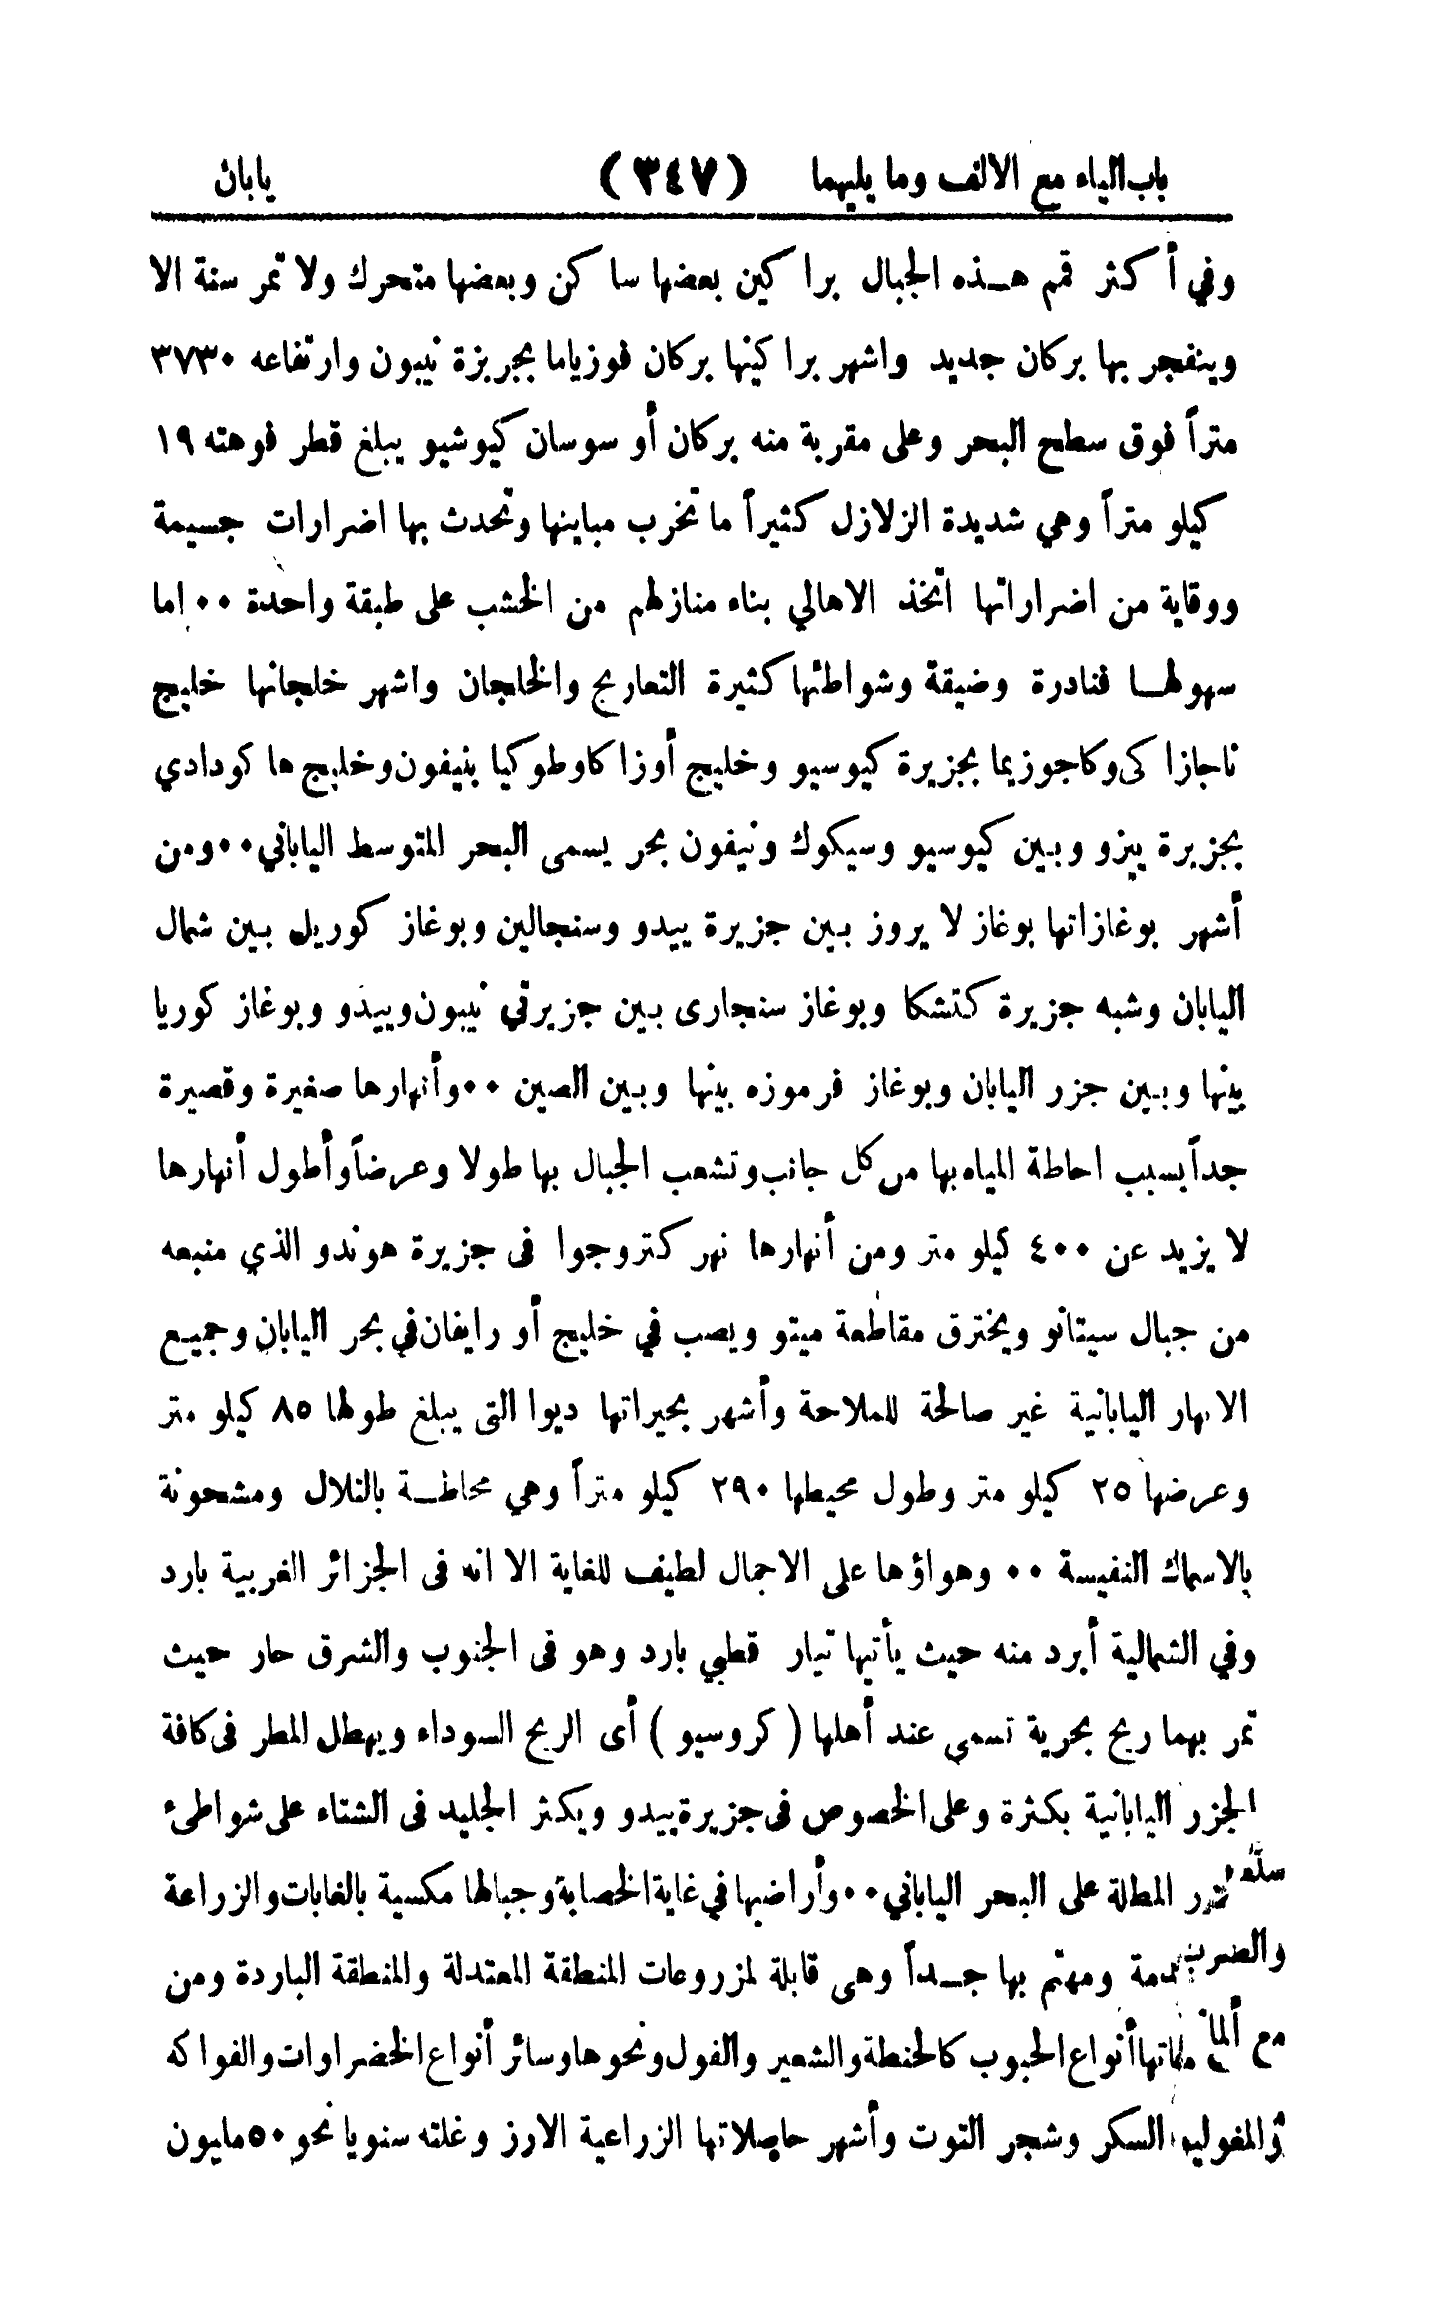 باب الياء مع الالف وما يليهما (٣٤٧) يابان
وفي أكثر قمم هـذه الجبال براكين بعضها ساكن وبعضها متحرك ولا تمر سنة الا
وينفجر بها بركان جديد واشهر براكينها بركان فوزياما بجريزة نيبون وارتفاعه ٣٧٣٠
متراً فوق سطح البحر وعلى مقربة منه بركان أو سوسان كيوشيو يبلغ قطر فوهته ١٩
كيلو متراً وهي شديدة الزلازل كثيراً ما تخرب مباينها وتحدث بها اضرارات جسيمة
ووقاية من اضراراتها اتخذ الاهالي بناء منازلهم من الخشب على طبقة واحدة ٠٠ اما
سهولهـا فنادرة وضيقة وشواطئها كثيرة التعاريج والخلجان واشهر خلجانها خليج
ناجازا كى وكاجوزيما بجزيرة كيوسيو وخليج أوزاكا وطوكيا بنيفون وخليج هاكودادي
بجزيرة ييزو وبين كيوسيو وسيكوك ونيفون بحر يسمى البحر المتوسط الياباني ٠٠ ومن
أشهر بوغازاتها بوغاز لا يروز بين جزيرة ييدو وسنجالين وبوغاز كوريل بين شمال
اليابان وشبه جزيرة كتشكا وبوغاز سنجارى بين جزيرتي نيبون وييدو وبوغاز كوريا
بينها وبين جزر اليابان وبوغاز فرموزه بينها وبين الصين ٠٠ وأنهارها صغيرة وقصيرة
جداً بسبب احاطة المياه بها من كل جانب وتشعب الجبال بها طولا وعرضاً وأطول أنهارها
لا يزيد عن ٤٠٠ كيلو متر ومن أنهارها نهر كتروجوا فى جزيرة هوندو الذي منبعه
من جبال سيتانو ويخترق مقاطعة ميتو ويصب في خليج أو رايفان في بحر اليابان وجميع
الانهار اليابانية غير صالحة للملاحة وأشهر بحيراتها ديوا التى يبلغ طولها ٨٥ كيلو متر
وعرضها ٢٥ كيلو متر وطول محيطها ٢٩٠ كيلو متراً وهي محاطـة بالتلال ومشحونة
بالاسماك النفيسة ٠٠ وهواؤها على الاجمال لطيف للغاية الا انه فى الجزائر الغربية بارد
وفي الشمالية أبرد منه حيث يأتيها تيار قطبي بارد وهو فى الجنوب والشرق حار حيث
تمر بهما ريح بحرية تسمى عند أهلها ( كروسيو ) أى الريح السوداء ويهطل المطر فى كافة
الجزر اليابانية بكثرة وعلى الخصوص فى جزيرة ييدو ويكثر الجليد فى الشتاء على شواطىء
المطلة على البحر الياباني ٠٠ وأراضيها في غاية الخصابة وجبالها مكسية بالغابات والزراعة
ومهتم بها جـداً وهى قابلة لمزروعات المنطقة المعتدلة والمنطقة الباردة ومن
أنواع الحبوب كالحنطة والشعير والفول ونحوها وسائر أنواع الخضراوات والفواكه
السكر وشجر التوت وأشهر حاصلاتها الزراعية الارز وغلته سنويا نحو ٥٠ مليون